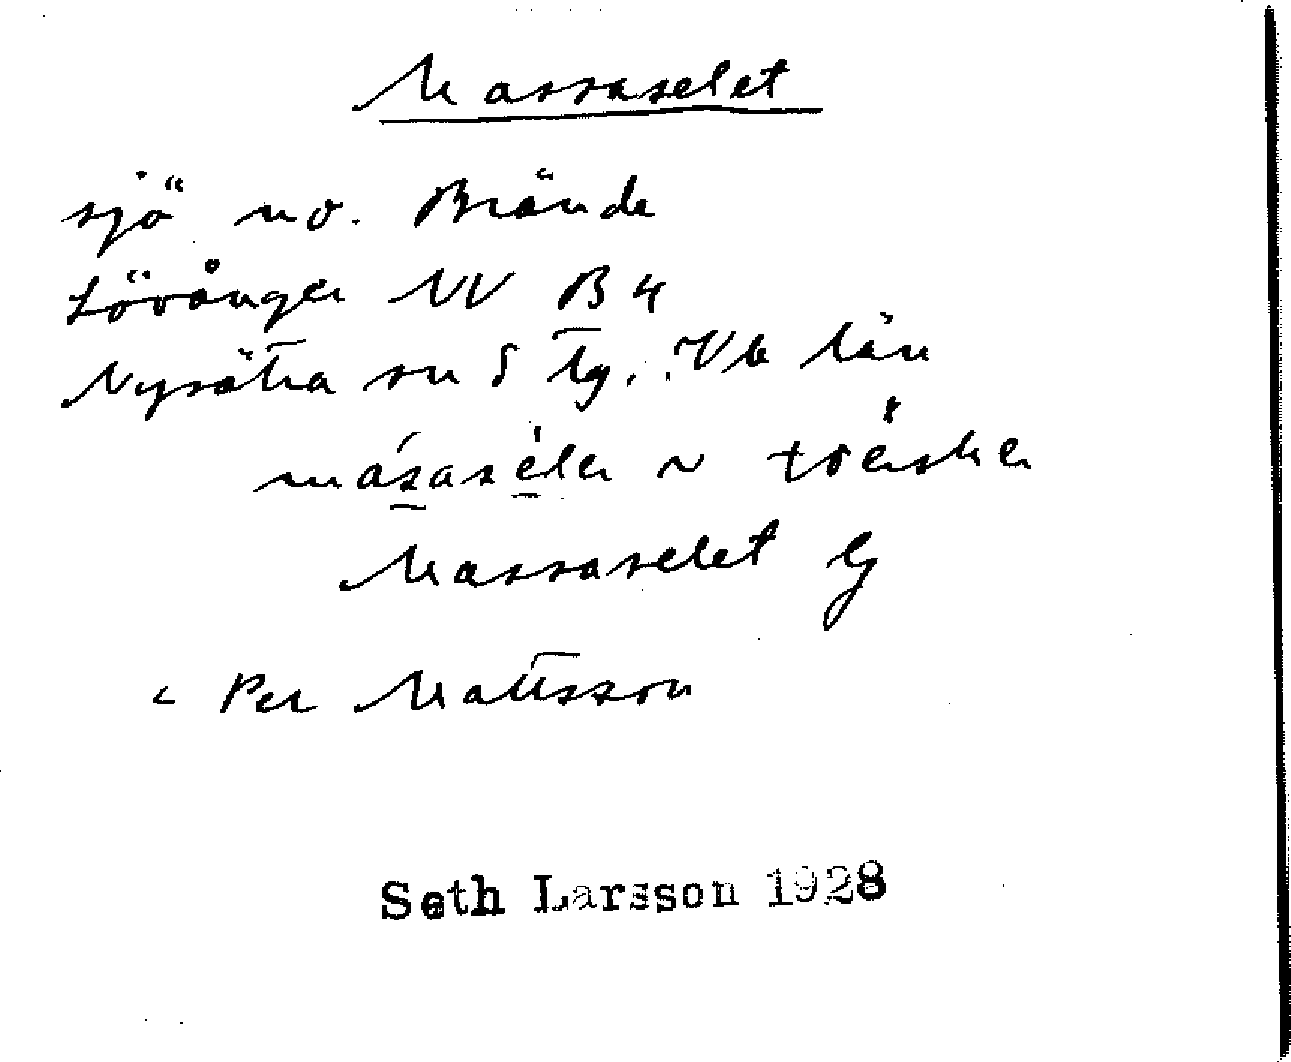 Massaselet
sjö no. Brände
Lövånger NV B 4
Nysätra sn S Tg. Vb län
másasèler ~ trèsker
Massaselet G
Per Mattsson
Seth Larsson 1928